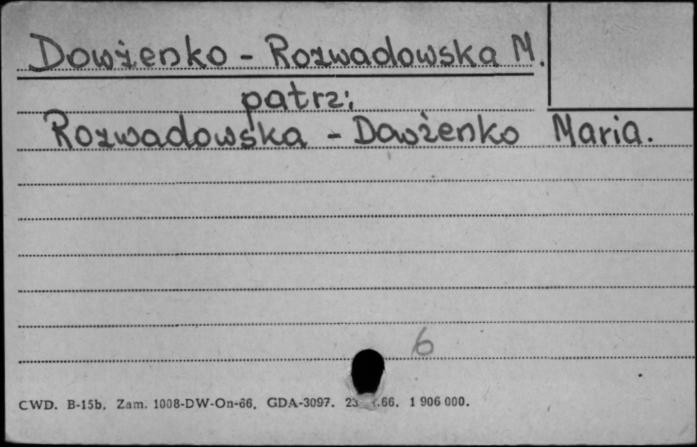 Dowżenko - Rozwadowska M.
patrz:
Rozwadowska - Dowżenko Maria.
6
CWD. B-15b. Zam. 1008-DW-On-66. GDA-3097. .66. 1 906 000.